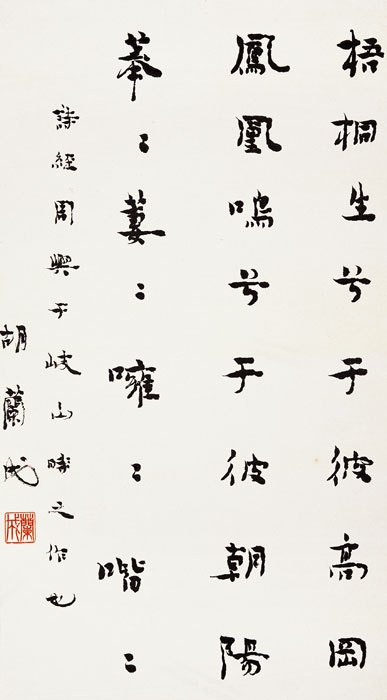 梧桐生兮于彼高岡
鳳凰鳴兮于彼朝陽
菶〻萋〻噰〻喈〻
詩經周興于岐山時之作也
胡蘭成
蘭成